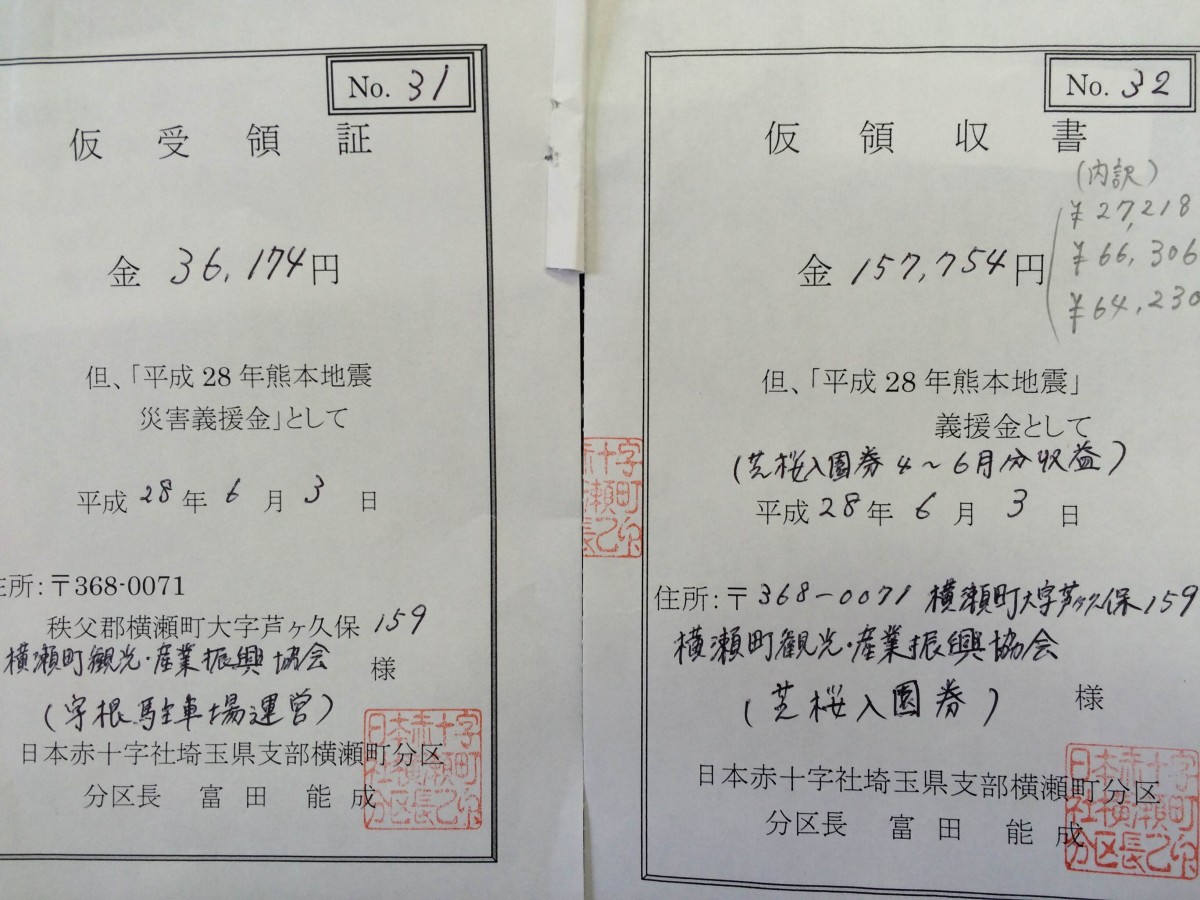 No. 31
仮受領証
金 36,174円
但、「平成28年熊本地震
災害義援金」として
平成28年6月3日
住所:〒368-0071
秩父郡横瀬町大字芦ヶ久保159
横瀬町観光・産業振興協会 様
(宇根駐車場運営)
日本赤十字社埼玉県支部横瀬町分区
分区長 富田 能成
日本赤十字
社横瀬町
分区長之印
No. 32
仮領収書
(内訳)
¥27,218
¥66,306
¥64,230
金 157,754円
但、「平成28年熊本地震」
義援金として
(芝桜入園券4~6月分収益)
平成28年6月3日
住所:〒368-0071 横瀬町大字芦ヶ久保159
横瀬町観光・産業振興協会
(芝桜入園券) 様
日本赤十字社埼玉県支部横瀬町分区
分区長 富田 能成
日本赤十字
社横瀬町
分区長之印
赤十字
瀬町
長之印